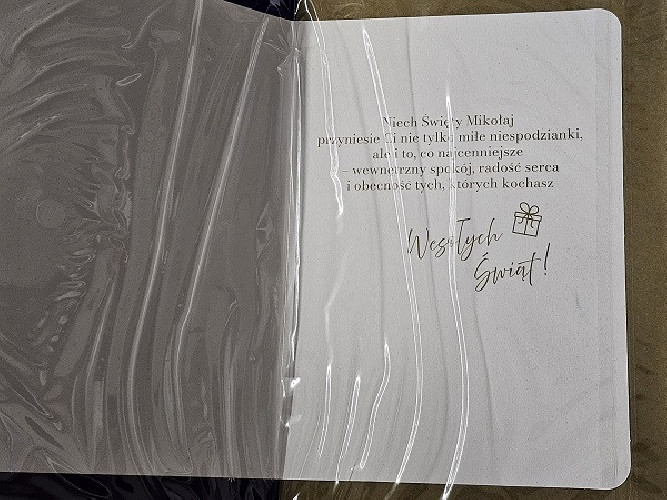 Niech Święty Mikołaj
przyniesie Ci nie tylko miłe niespodzianki,
ale i to, co najcenniejsze
– wewnętrzny spokój, radość serca
i obecność tych, których kochasz
Wesołych
Świąt!